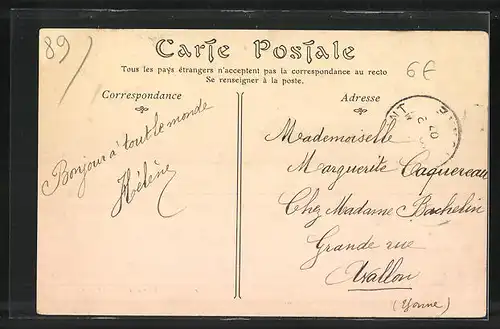 89
Carte Postale
Tous les pays étrangers n'acceptent pas la correspondance au recto
Se renseigner à la poste.
6E
Correspondance
Adresse
Bonjour à tout le monde
Hélène
Mademoiselle
Marguerite Caquereau
Chez Madame Bachelin
Grande rue
Avallon
(Yonne)